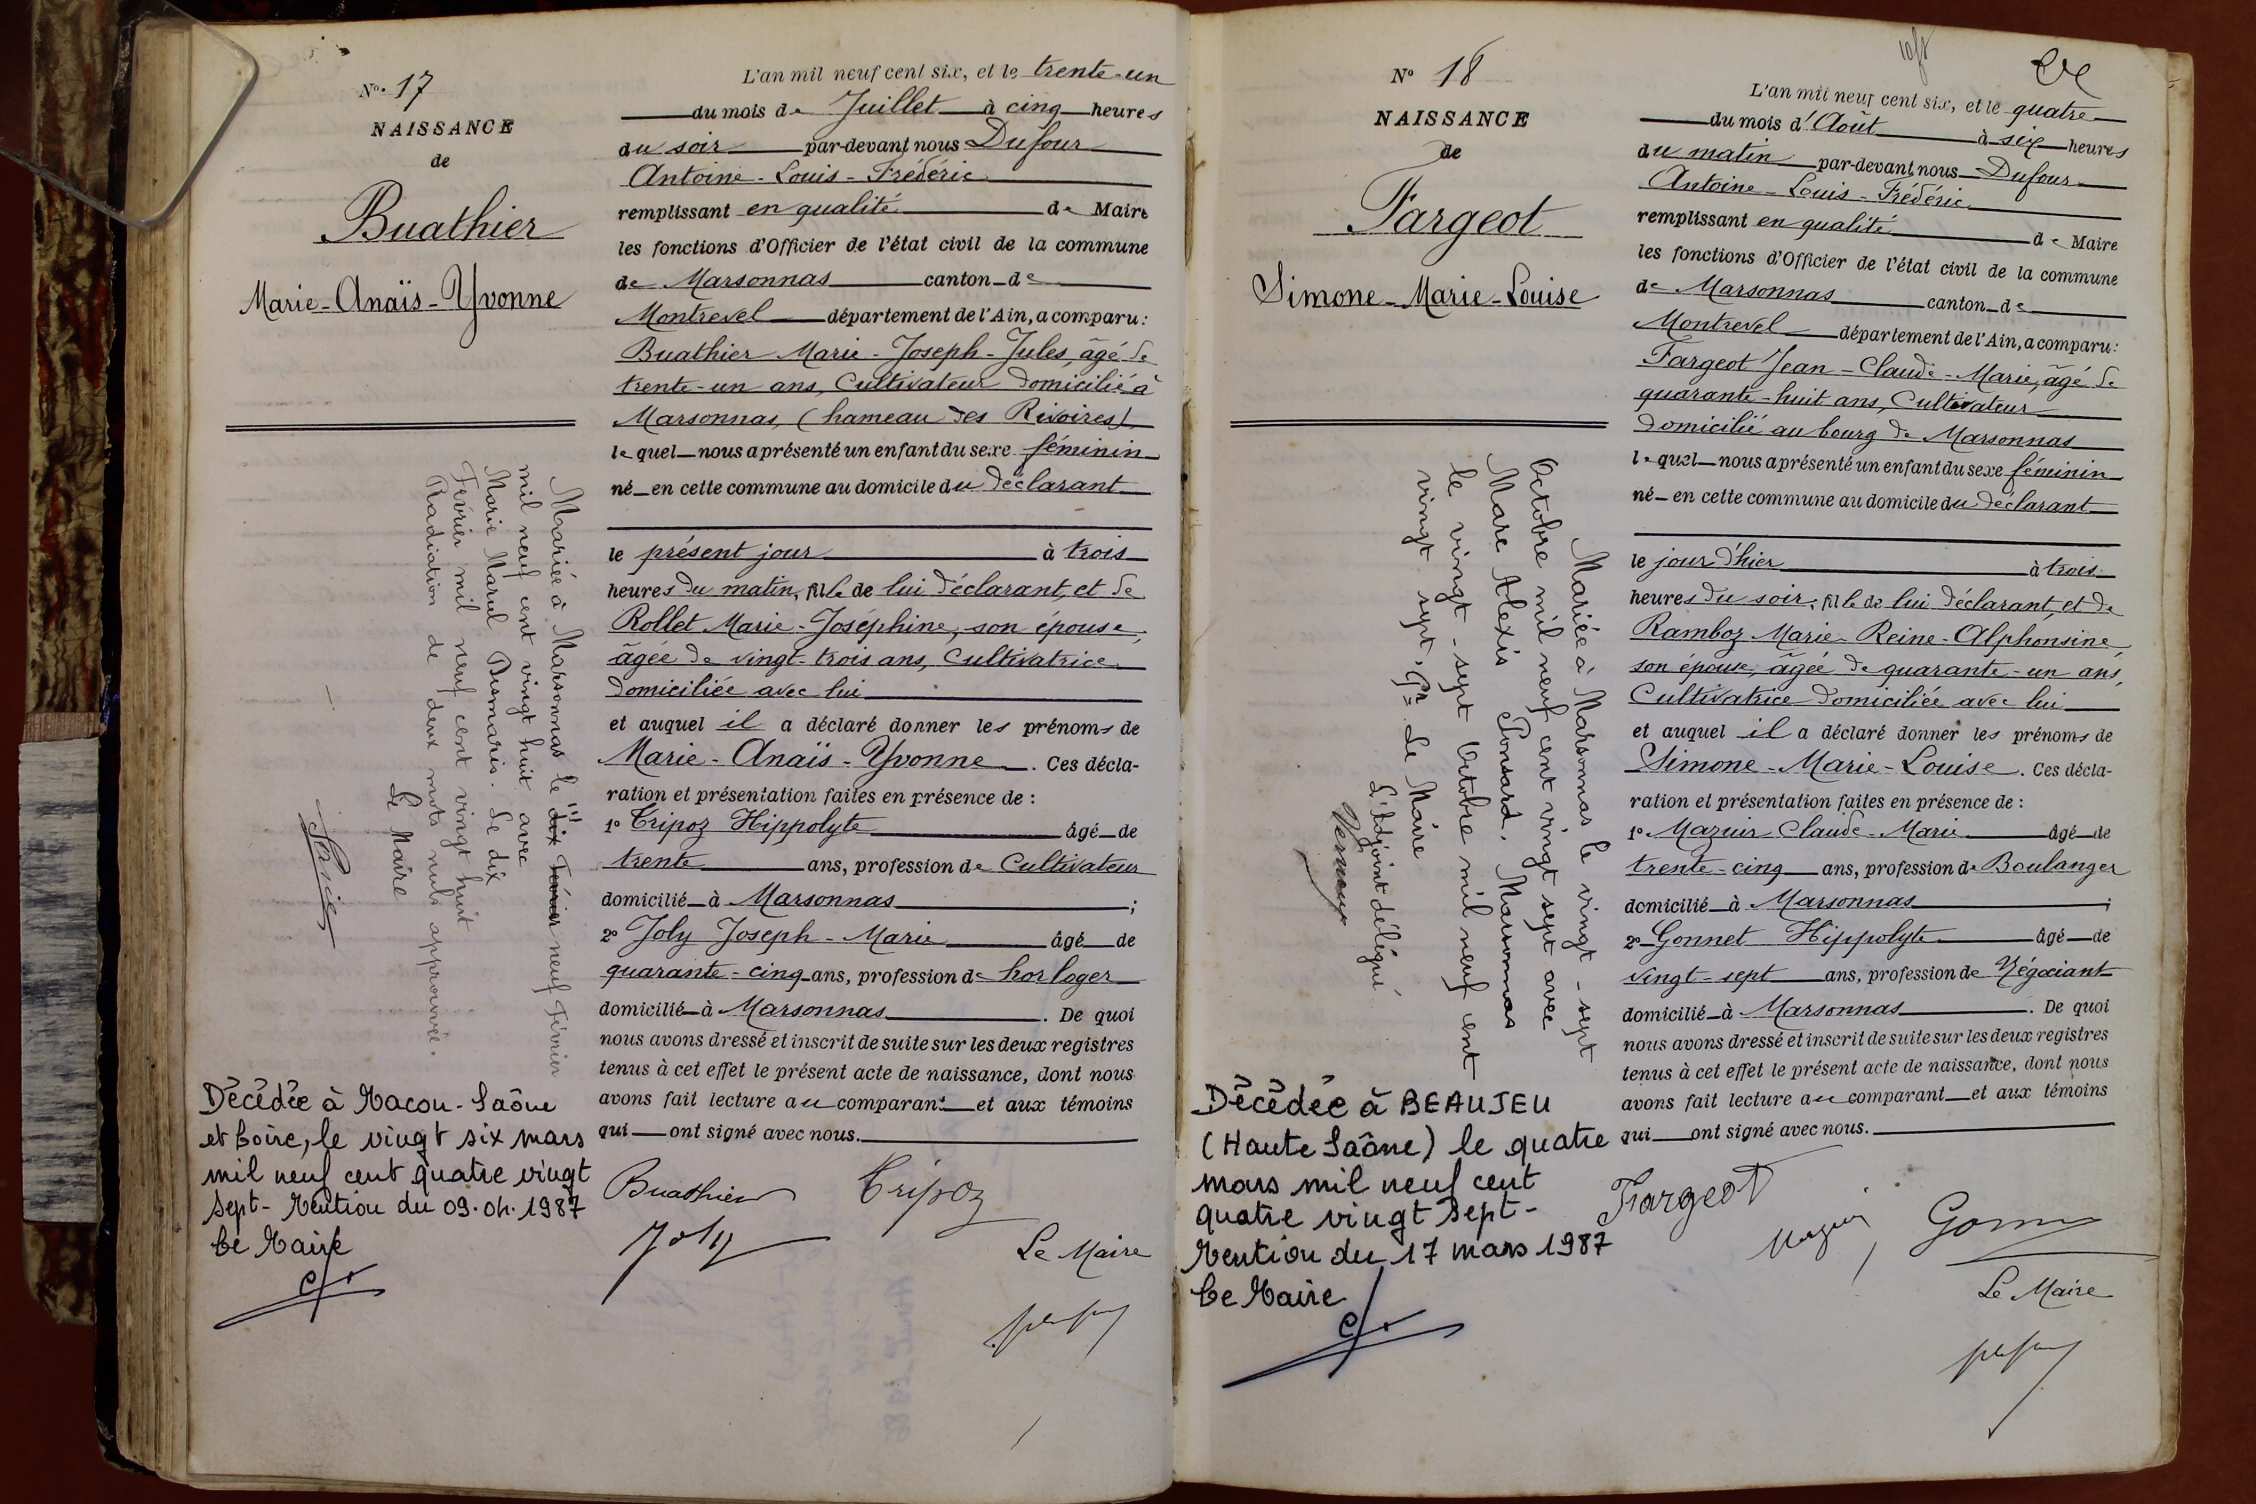 N° 17
NAISSANCE
de
Buathier
Marie-Anaïs-Yvonne
Mariée à Marsonnas le dix Février neuf Février
mil neuf cent vingt huit avec
Marie Marul Desmaris. Le dix
Février mil neuf cent vingt huit
Radiation de deux mots nuls approuvée.
Le Maire
Décédée à Macon-Saône
et Loire, le vingt six mars
mil neuf cent quatre vingt
sept- Mention du 09.04.1987
Le Maire
L'an mil neuf cent six, et le trente-un
du mois de Juillet à cinq heures
du soir par-devant nous Dufour
Antoine-Louis-Frédéric
remplissant en qualité de Maire
les fonctions d'Officier de l'état civil de la commune
de Marsonnas canton de
Montrevel département de l'Ain, a comparu:
Buathier Marie-Joseph-Jules, âgé de
trente-un ans, Cultivateur domicilié à
Marsonnas, (hameau des Rivoires)
lequel nous a présenté un enfant du sexe féminin
né en cette commune au domicile du déclarant
le présent jour à trois
heures du matin, fille de lui déclarant, et de
Rollet Marie-Joséphine, son épouse,
âgée de vingt-trois ans, Cultivatrice
domiciliée avec lui
et auquel il a déclaré donner les prénoms de
Marie-Anaïs-Yvonne. Ces décla-
ration et présentation faites en présence de:
1° Tripoz Hippolyte âgé de
trente ans, profession de Cultivateur
domicilié à Marsonnas;
2° Joly Joseph-Marie âgé de
quarante-cinq ans, profession de horloger
domicilié à Marsonnas. De quoi
nous avons dressé et inscrit de suite sur les deux registres
tenus à cet effet le présent acte de naissance, dont nous
avons fait lecture au comparant et aux témoins
qui ont signé avec nous.
Buathier Tripoz
Joly
Le Maire
N° 18
NAISSANCE
de
Fargeot
Simone-Marie-Louise
Mariée à Marsonnas le vingt-sept
Octobre mil neuf cent vingt sept avec
Marc Alexis Ponsard. Marsonnas
le vingt-sept Octobre mil neuf cent
vingt sept. Pr. Le Maire
L'Adjoint délégué
Décédée à BEAUJEU
(Haute Saône) le quatre
mars mil neuf cent
quatre vingt sept-
Mention du 17 mars 1987
Le Maire
L'an mil neuf cent six, et le quatre
du mois d'Août à six heures
du matin par-devant nous Dufour
Antoine-Louis-Frédéric
remplissant en qualité de Maire
les fonctions d'Officier de l'état civil de la commune
de Marsonnas canton de
Montrevel département de l'Ain, a comparu:
Fargeot Jean-Claude-Marie, âgé de
quarante-huit ans, Cultivateur
domicilié au bourg de Marsonnas
lequel nous a présenté un enfant du sexe féminin
né en cette commune au domicile du déclarant
le jour d'hier à trois
heures du soir, fille de lui déclarant, et de
Ramboz Marie-Reine-Alphonsine
son épouse, âgée de quarante-un ans,
Cultivatrice domiciliée avec lui
et auquel il a déclaré donner les prénoms de
Simone-Marie-Louise. Ces décla-
ration et présentation faites en présence de:
1° Mazuir Claude-Marie âgé de
trente-cinq ans, profession de Boulanger
domicilié à Marsonnas;
2° Gonnet Hippolyte âgé de
vingt-sept ans, profession de Négociant
domicilié à Marsonnas. De quoi
nous avons dressé et inscrit de suite sur les deux registres
tenus à cet effet le présent acte de naissance, dont nous
avons fait lecture au comparant et aux témoins
qui ont signé avec nous.
Fargeot
Mazuir
Le Maire